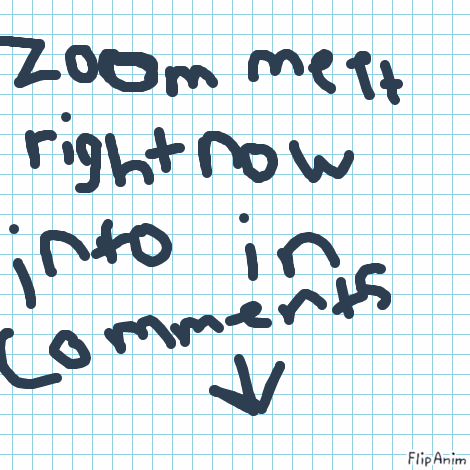 zoom melt
right now
into in
comments
FlipAnim